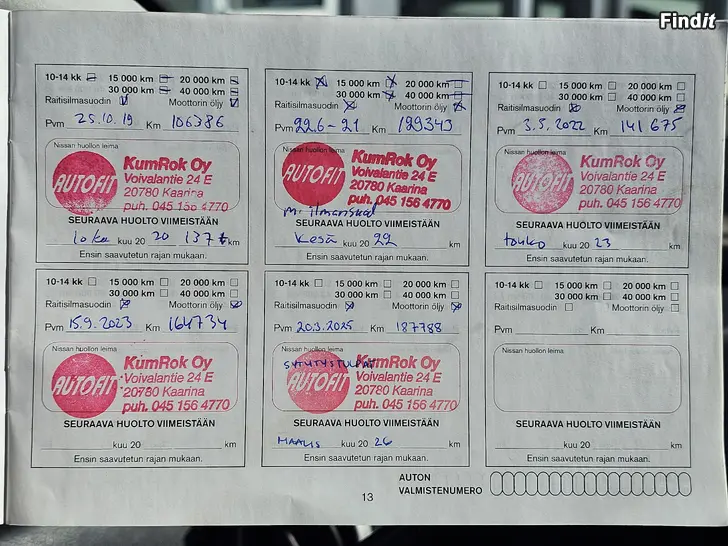 Findit
10-14 kk 15 000 km 20 000 km
30 000 km 40 000 km
Raitisilmasuodin Moottorin öljy
Pvm 25.10.19 Km 106386
Nissan huollon leima
AUTOFIT
KumRok Oy
Voivalantie 24 E
20780 Kaarina
puh. 045 156 4770
SEURAAVA HUOLTO VIIMEISTÄÄN
loka kuu 20 20 137t km
Ensin saavutetun rajan mukaan.
10-14 kk 15 000 km 20 000 km
30 000 km 40 000 km
Raitisilmasuodin Moottorin öljy
Pvm 22.6-21 Km 129343
Nissan huollon leima
AUTOFIT
KumRok Oy
Voivalantie 24 E
20780 Kaarina
puh. 045 156 4770
SEURAAVA HUOLTO VIIMEISTÄÄN
Kesä kuu 20 22 km
Ensin saavutetun rajan mukaan.
10-14 kk 15 000 km 20 000 km
30 000 km 40 000 km
Raitisilmasuodin Moottorin öljy
Pvm 3.5.2022 Km 141 675
Nissan huollon leima
AUTOFIT
KumRok Oy
Voivalantie 24 E
20780 Kaarina
puh. 045 156 4770
SEURAAVA HUOLTO VIIMEISTÄÄN
touko kuu 20 23 km
Ensin saavutetun rajan mukaan.
10-14 kk 15 000 km 20 000 km
30 000 km 40 000 km
Raitisilmasuodin Moottorin öljy
Pvm 15.9.2023 Km 164734
Nissan huollon leima
AUTOFIT
KumRok Oy
Voivalantie 24 E
20780 Kaarina
puh. 045 156 4770
SEURAAVA HUOLTO VIIMEISTÄÄN
kuu 20 km
Ensin saavutetun rajan mukaan.
10-14 kk 15 000 km 20 000 km
30 000 km 40 000 km
Raitisilmasuodin Moottorin öljy
Pvm 20.3.2025 Km 187788
Nissan huollon leima
AUTOFIT
KumRok Oy
Voivalantie 24 E
20780 Kaarina
puh. 045 156 4770
SEURAAVA HUOLTO VIIMEISTÄÄN
MAALIS kuu 20 26 km
Ensin saavutetun rajan mukaan.
10-14 kk 15 000 km 20 000 km
30 000 km 40 000 km
Raitisilmasuodin Moottorin öljy
Pvm Km
Nissan huollon leima
SEURAAVA HUOLTO VIIMEISTÄÄN
kuu 20 km
Ensin saavutetun rajan mukaan.
13
AUTON
VALMISTENUMERO